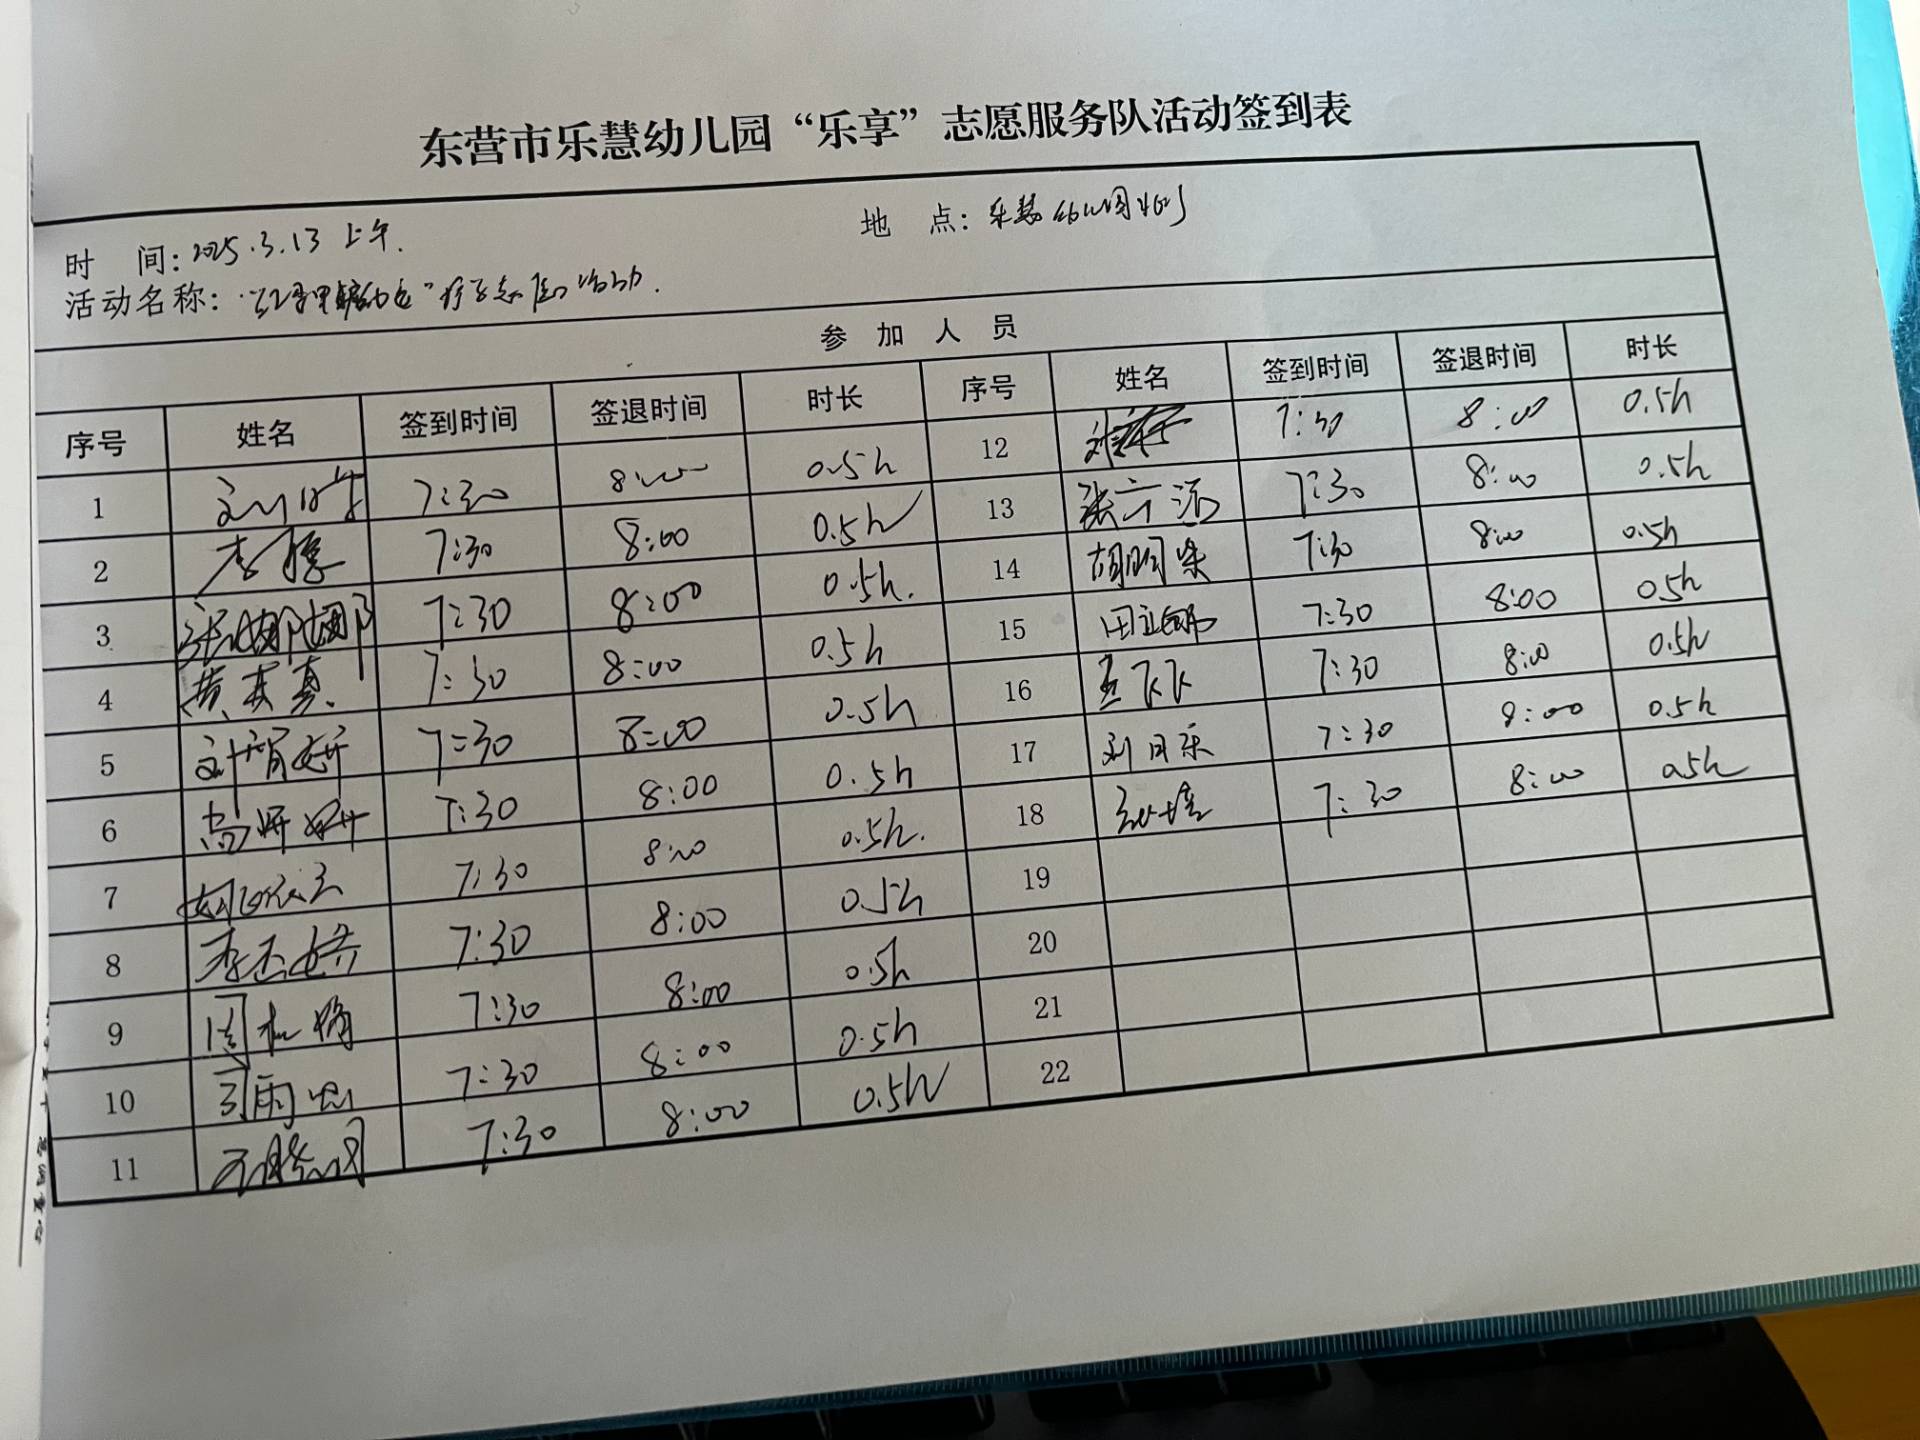 东营市乐慧幼儿园“乐享”志愿服务队活动签到表
时 间：2025.3.13 上午.
地 点：乐慧幼儿园
活动名称：志愿活动.
参 加 人 员
序号 姓名 签到时间 签退时间 时长 序号 姓名 签到时间 签退时间 时长
1 7:30 8:00 0.5h 12 7:30 8:00 0.5h
2 李 7:30 8:00 0.5h 13 张 7:30 8:00 0.5h
3 张娜娜 7:30 8:00 0.5h. 14 胡明 7:30 8:00 0.5h
4 黄英真 7:30 8:00 0.5h 15 田 7:30 8:00 0.5h
5 刘 7:30 8:00 0.5h 16 孟飞飞 7:30 8:00 0.5h
6 尚妍妍 7:30 8:00 0.5h 17 刘日乐 7:30 8:00 0.5h
7 7:30 8:00 0.5h. 18 7:30 8:00 0.5h
8 李 7:30 8:00 0.5h 19
9 周 7:30 8:00 0.5h 20
10 雨 7:30 8:00 0.5h 21
11 7:30 8:00 0.5h 22